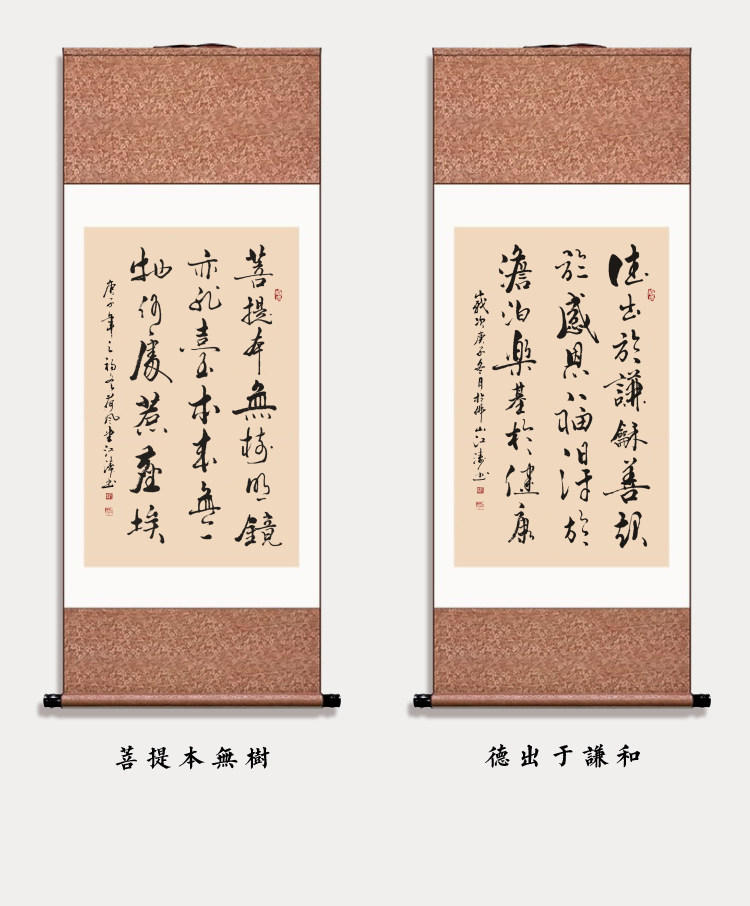 菩提本無樹明鏡
亦非臺本來無一
物何處惹塵埃
庚子年之荷風堂江濤書
德出於謙龢善起
於感恩於
澹泊樂基於健康
歲次庚子冬月於佛山江濤書
菩提本無樹
德出于謙和